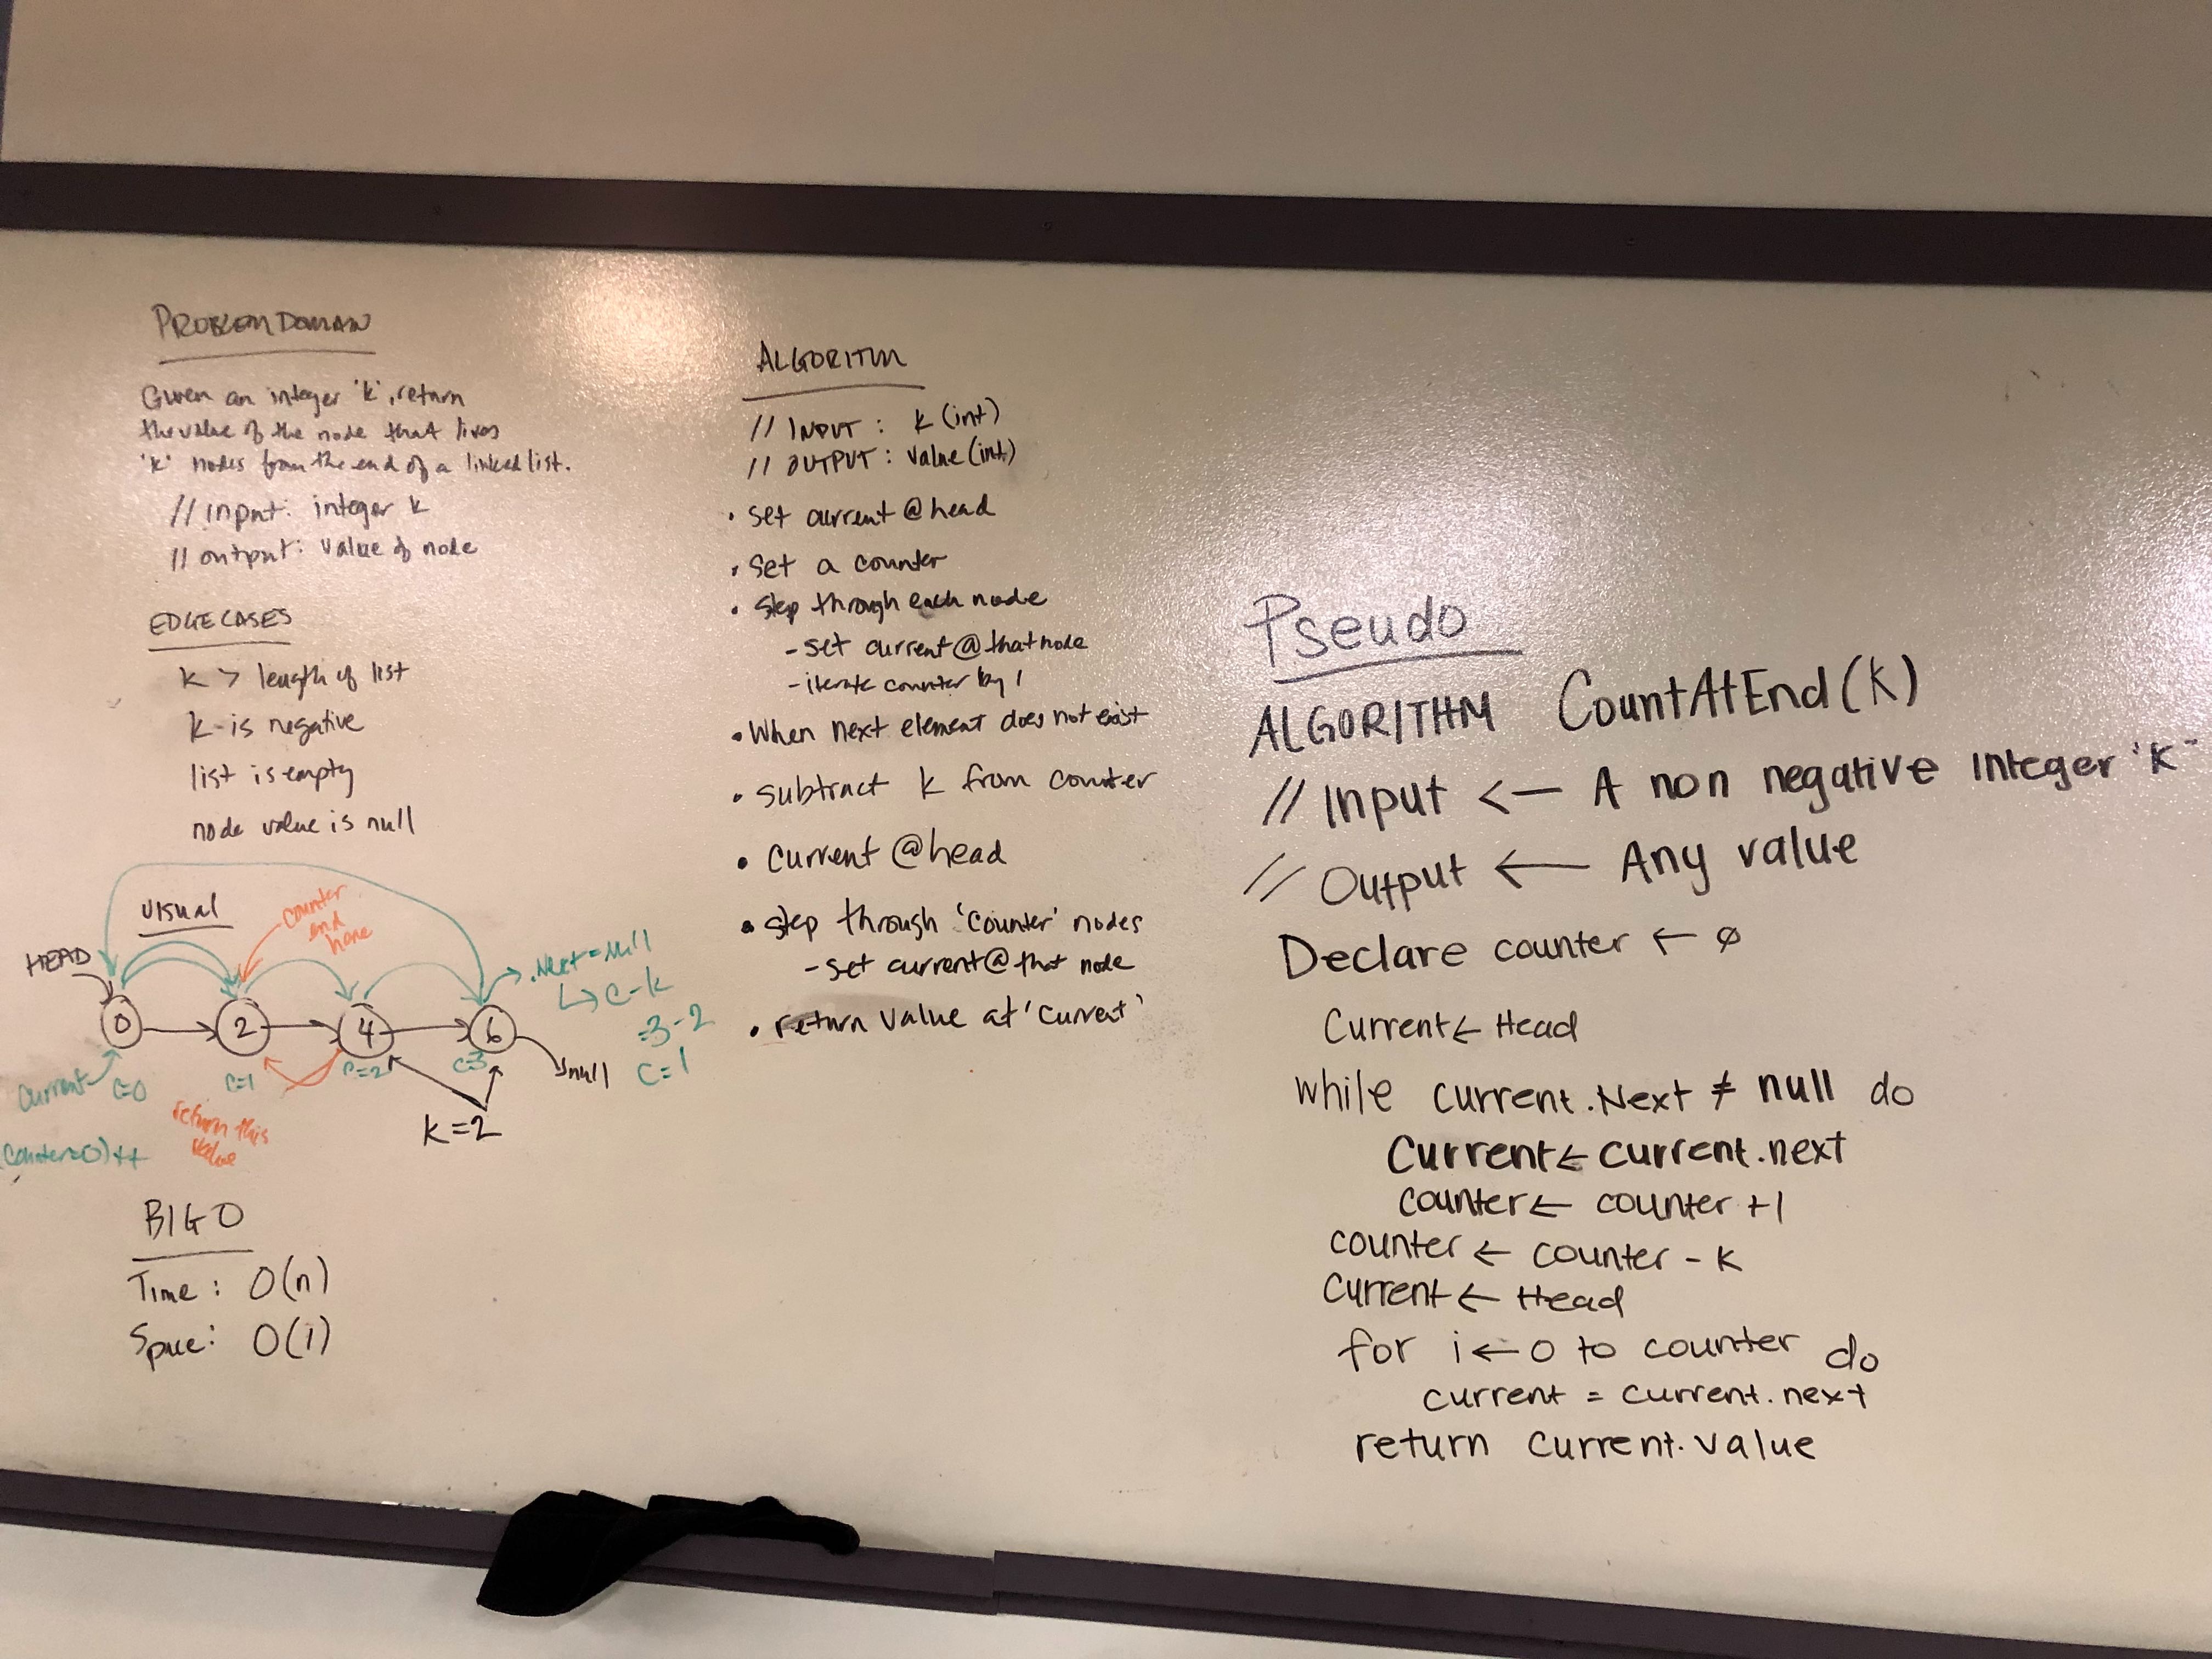 PROBLEM DOMAIN
Given an integer 'k', return
the value of the node that lives
'k' nodes from the end of a linked list.
// input: integer k
// output: value of node
EDGE CASES
k > length of list
k - is negative
list is empty
node value is null
visual
counter
end
here
HEAD
.Next = null
↳ c - k
= 3 - 2
c = 1
0 → 2 → 4 → 6
null
current
c=0
c=1
c=2
c=3
return this
value
k=2
(counter=0)++
BIG O
Time: O(n)
Space: O(1)
ALGORITM
// INPUT : k (int)
// OUTPUT : value (int)
• set current @ head
• set a counter
• step through each node
- set current @ that node
- iterate counter by 1
• When next element does not exist
• subtract k from counter
• current @ head
• step through 'counter' nodes
- set current @ that node
• return value at 'current'
Pseudo
ALGORITHM CountAtEnd(k)
// Input <— A non negative integer 'k'
// Output ← Any value
Declare counter ← ∅
Current ← Head
while current.Next ≠ null do
Current ← current.next
counter ← counter +1
counter ← counter - k
Current ← Head
for i ← 0 to counter do
current = current.next
return current.value